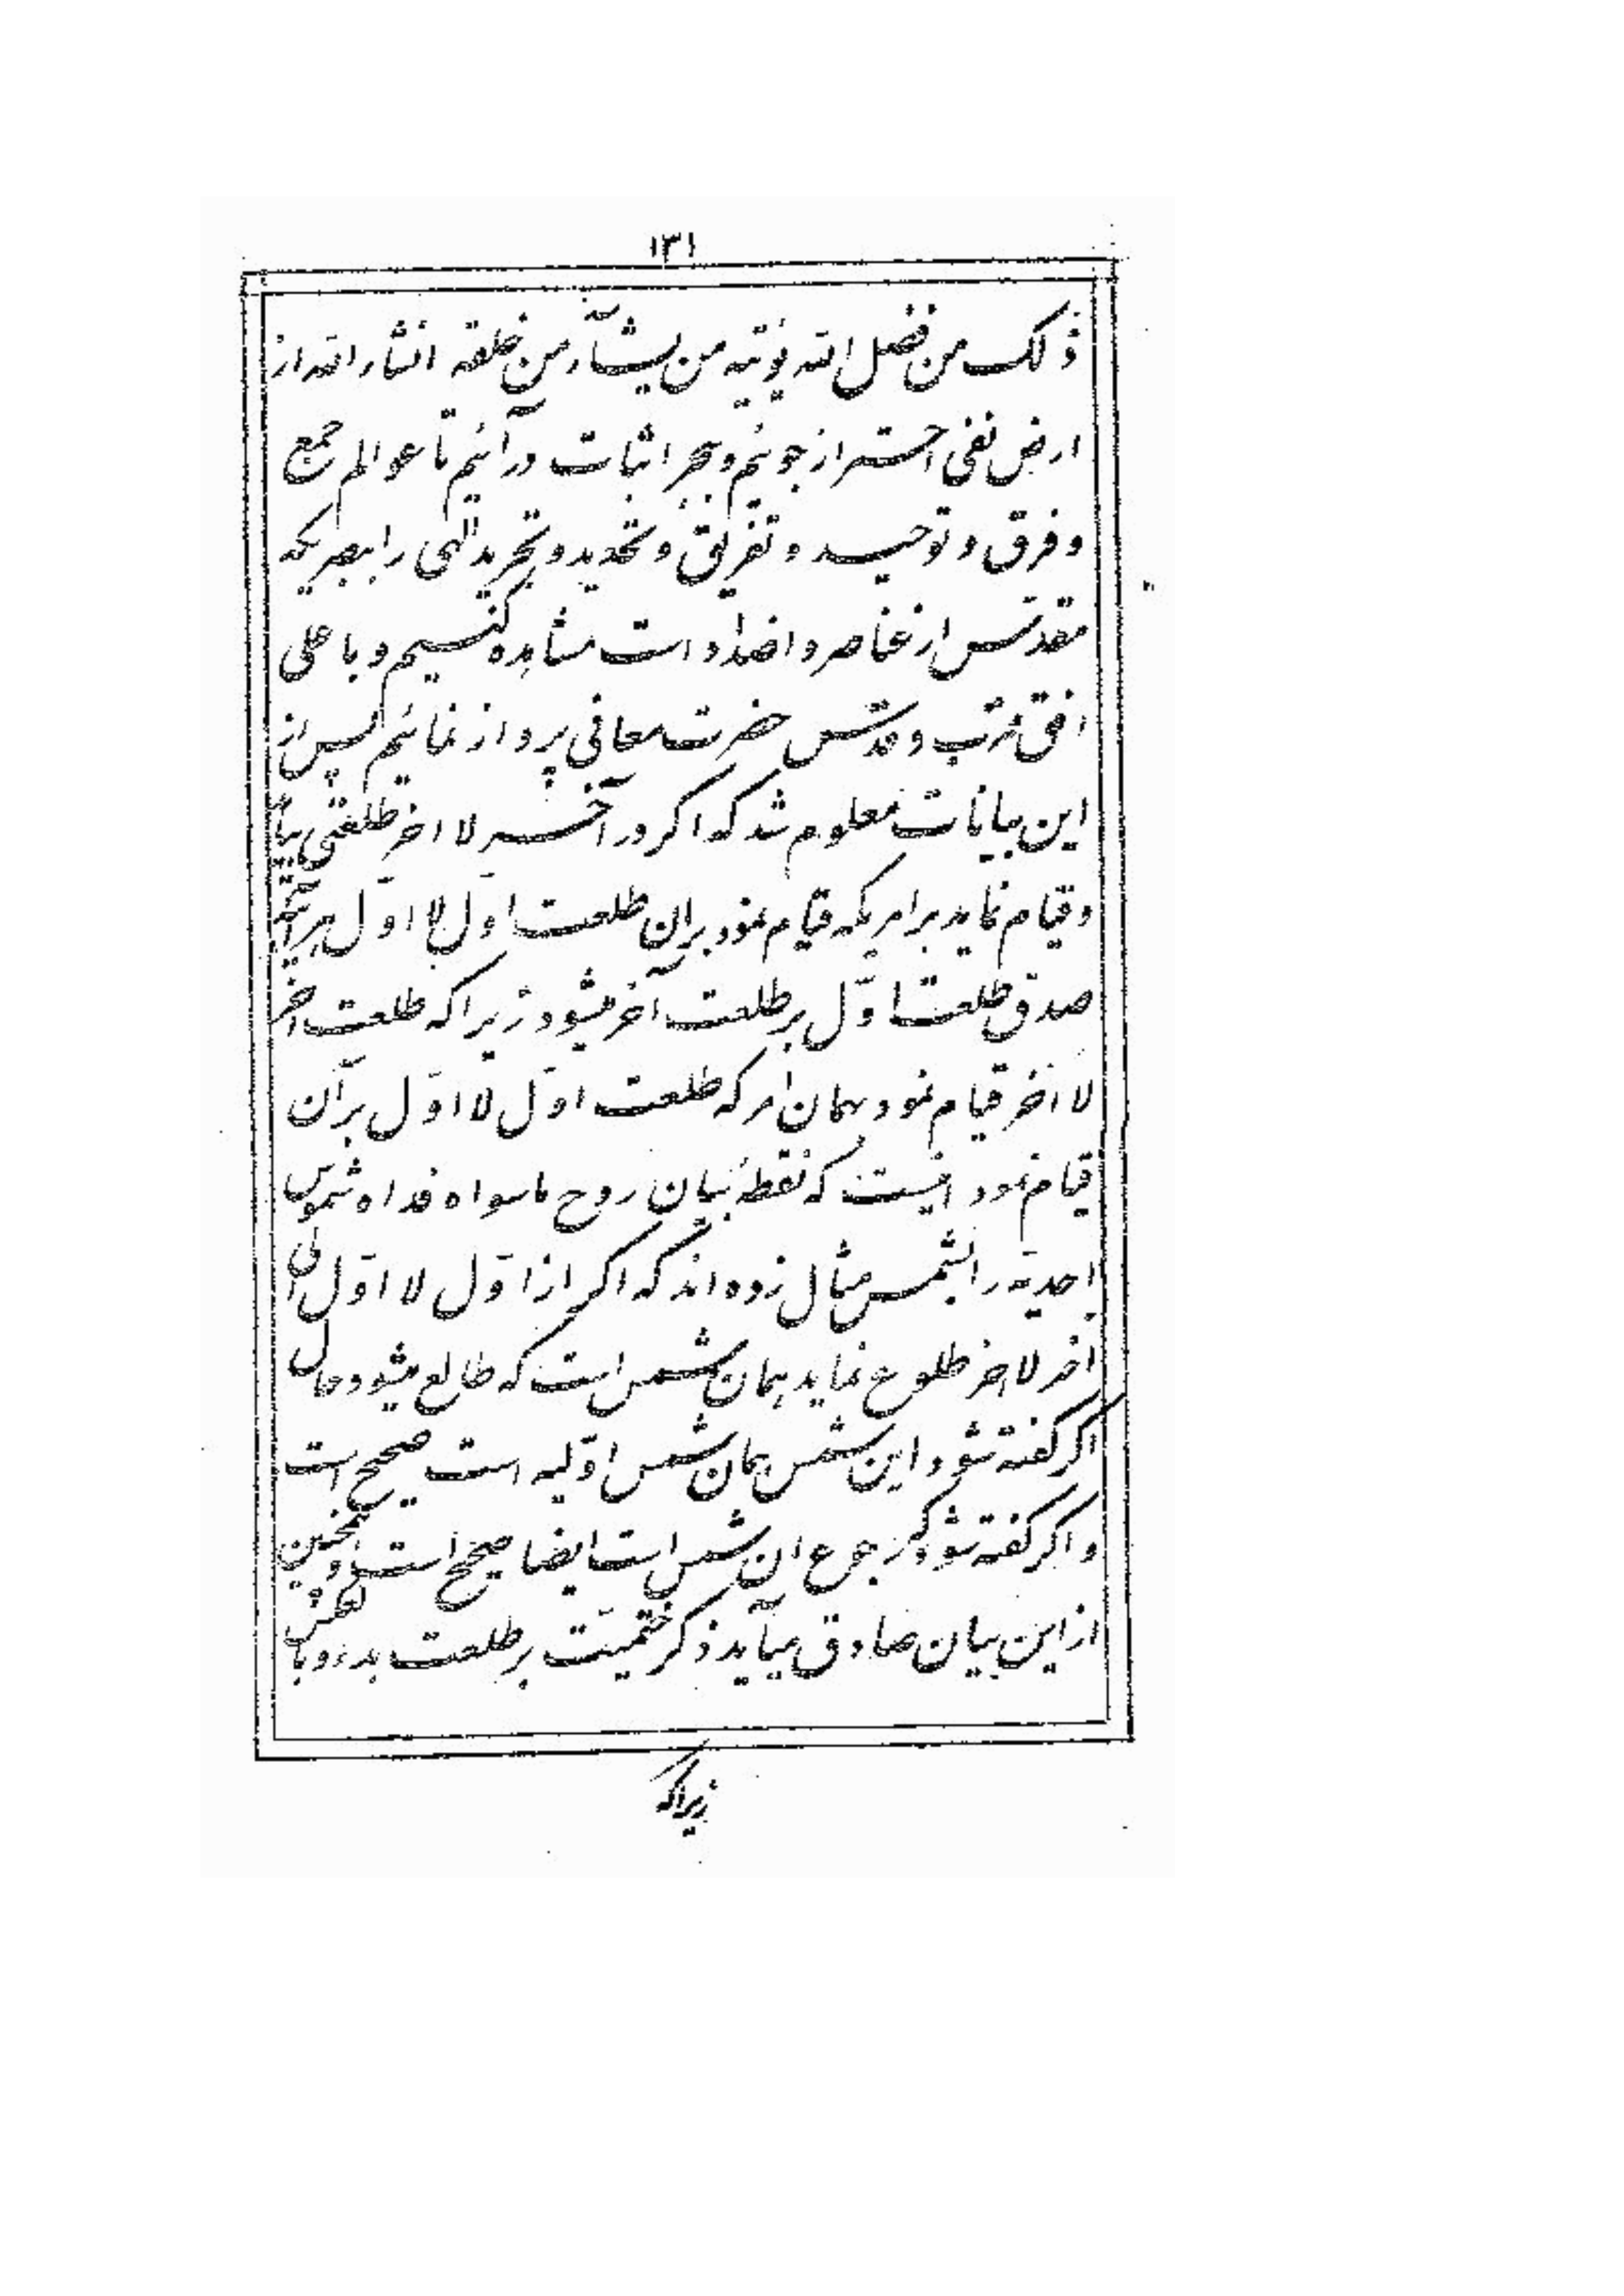 ۱۳۱
ذلک من فضل الله یؤتیه من یشآء من خلقه انشاء الله از
ارض نفی احتراز جوئیم و ببحر اثبات درآئیم تا عوالم جمع
و فرق و توحید و تفریق و تحدید و تجرید الهی را ببصریکه
مقدّس از عناصر و اضداد است مشاهده کنیم و باعلی
افق قرب و قدس حضرت معانی پرواز نمائیم پس از
این بیانات معلوم شد که اگر در آخر لا اخر طلعتی بیاید
و قیام نماید بر امریکه قیام نمود بران طلعت اوّل لا اوّل هرآینه
صدق طلعت اوّل بر طلعت آخر میشود زیرا که طلعت اخر
لا اخر قیام نمود بهمان امر که طلعت اوّل لا اوّل برآن
قیام نمود اینست که نقطهٔ بیان روح ماسواه فداه شموس
احدیّه را بشمس مثال زده‌اند که اگر از اوّل لا اوّل الی
اخر لا اخر طلوع نماید همان شمس است که طالع میشود حال
اگر گفته شود این شمس همان شمس اوّلیه است صحیح است
و اگر گفته شود که رجوع ان شمس است ایضا صحیح است و همچنین
از این بیان صادق میآید ذکر ختمیّت بر طلعت بدء و بالعکس
زیرا که